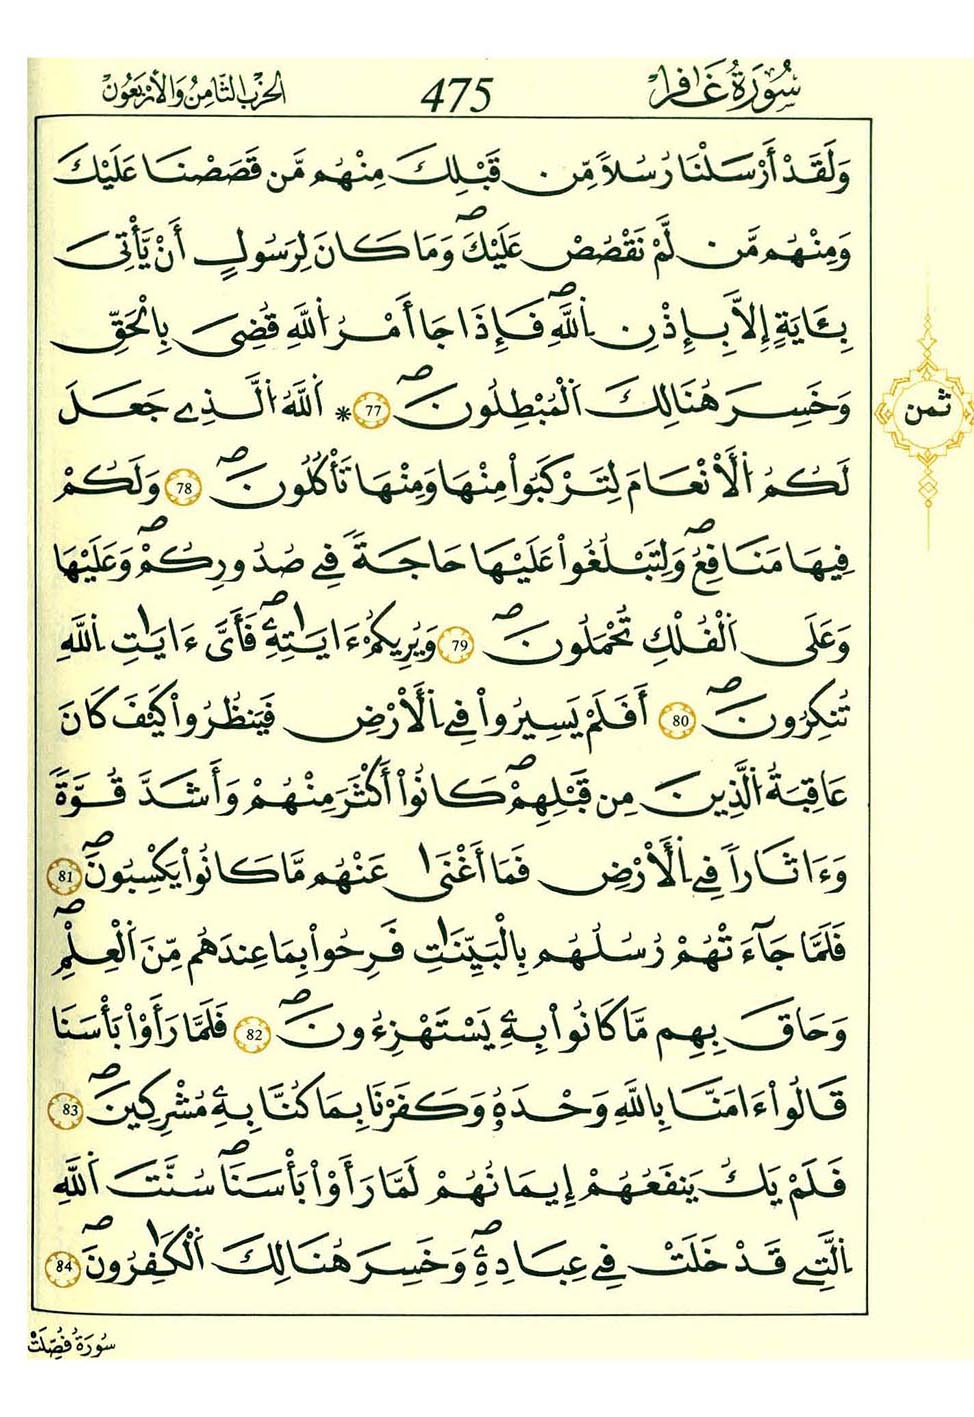 سُورَةُ غَافِر 475 الحِزْبُ الثَّامِنُ وَالأَرْبَعُونَ
وَلَقَدْ أَرْسَلْنَا رُسُلاً مِّن قَبْلِكَ مِنْهُم مَّن قَصَصْنَا عَلَيْكَ
وَمِنْهُم مَّن لَّمْ نَقْصُصْ عَلَيْكَۖ وَمَا كَانَ لِرَسُولٍ أَنْ يَّأْتِىَ
بِـَٔايَةٍ إِلاَّ بِإِذْنِ اِللَّهِۖ فَإِذَا جَا أَمْرُ اُللَّهِ قُضِىَ بِالْحَقِّ
وَخَسِرَ هُنَالِكَ اَلْمُبْطِلُونَۖ 77 * اَللَّهُ اُلَّذِے جَعَلَ
لَكُمُ اُلَانْعَامَ لِتَرْكَبُواْ مِنْهَا وَمِنْهَا تَأْكُلُونَۖ 78 وَلَكُمْ
فِيهَا مَنَافِعُۖ وَلِتَبْلُغُواْ عَلَيْهَا حَاجَةً فِے صُدُورِكُمْۖ وَعَلَيْهَا
وَعَلَى اَلْفُلْكِ تُحْمَلُونَۖ 79 وَيُرِيكُمُ ءَايَٰتِهِۦۖ فَأَىَّ ءَايَٰتِ اِللَّهِ
تُنكِرُونَۖ 80 أَفَلَمْ يَسِيرُواْ فِے اِلَارْضِ فَيَنظُرُواْ كَيْفَ كَانَ
عَاقِبَةُ اُلَّذِينَ مِن قَبْلِهِمْۖ كَانُواْ أَكْثَرَ مِنْهُمْ وَأَشَدَّ قُوَّةً
وَءَاثَاراً فِے اِلَارْضِ فَمَا أَغْنَىٰ عَنْهُم مَّا كَانُواْ يَكْسِبُونَۖ 81
فَلَمَّا جَآءَتْهُمْ رُسُلُهُم بِالْبَيِّنَٰتِ فَرِحُواْ بِمَا عِندَهُم مِّنَ اَلْعِلْمِۖ
وَحَاقَ بِهِم مَّا كَانُواْ بِهِۦ يَسْتَهْزِءُونَۖ 82 فَلَمَّا رَأَوْاْ بَأْسَنَا
قَالُواْ ءَامَنَّا بِاللَّهِ وَحْدَهُۥ وَكَفَرْنَا بِمَا كُنَّا بِهِۦ مُشْرِكِينَۖ 83
فَلَمْ يَكُ يَنفَعُهُمْ إِيمَانُهُمْ لَمَّا رَأَوْاْ بَأْسَنَاۖ سُنَّتَ اَللَّهِ
اِلَّتِے قَدْ خَلَتْ فِے عِبَادِهِۦۖ وَخَسِرَ هُنَالِكَ اَلْكَٰفِرُونَۖ 84
ثمن
سُورَةُ فُصِّلَتْ